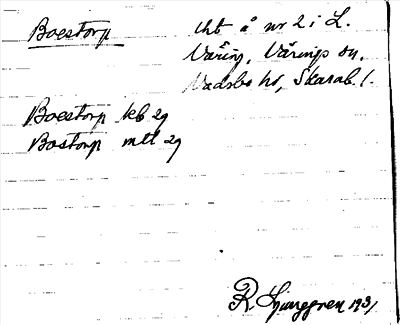 Boestorp
lht å nr 2 i L.
Våring, Vårings sn,
Vadsbo hd, Skarab. l.
Boestorp kb 29
Bostorp mtl 29
R Ljunggren 1931